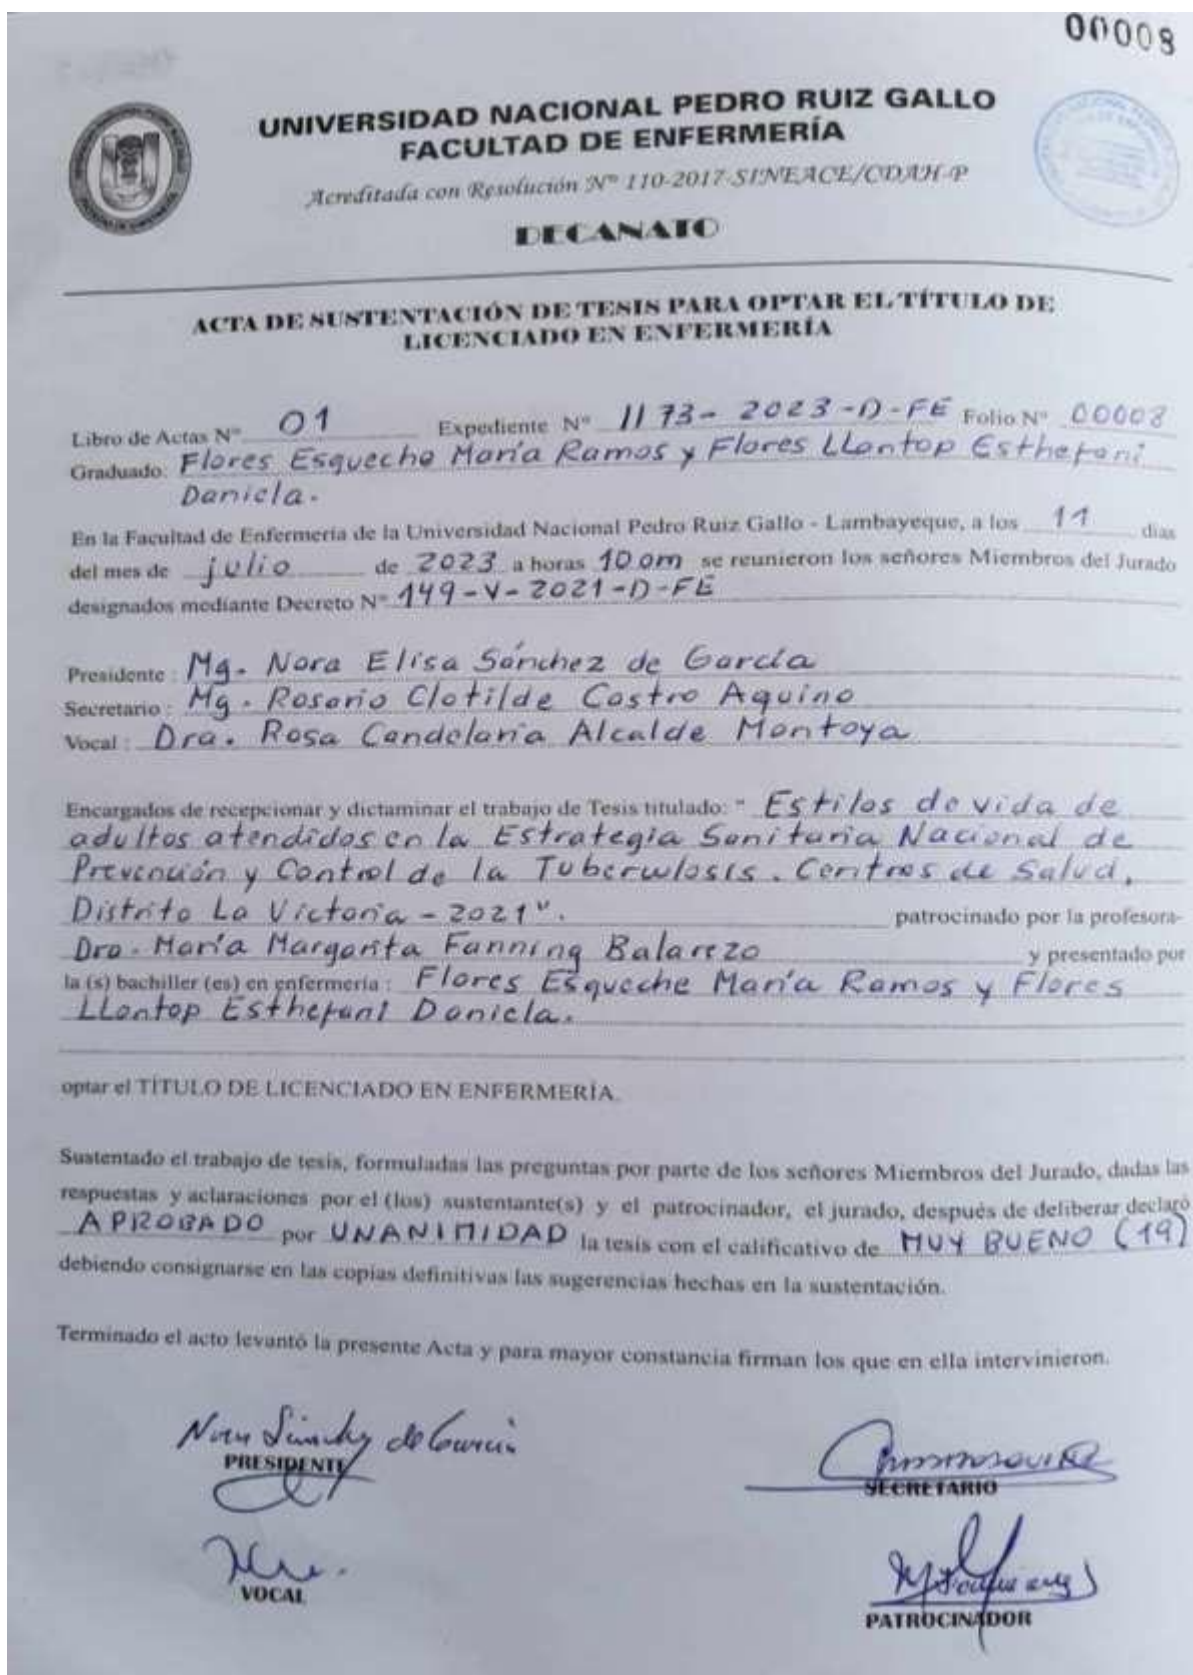 00008
UNIVERSIDAD NACIONAL PEDRO RUIZ GALLO
FACULTAD DE ENFERMERÍA
Acreditada con Resolución N° 110-2017-SINEACE/CDAH-P
DECANATO
ACTA DE SUSTENTACIÓN DE TESIS PARA OPTAR EL TÍTULO DE
LICENCIADO EN ENFERMERÍA
Libro de Actas N° 01 Expediente N° 1173-2023-D-FE Folio N° 00008
Graduado: Flores Esqueche María Ramos y Flores Llontop Esthefani
Daniela.
En la Facultad de Enfermería de la Universidad Nacional Pedro Ruiz Gallo - Lambayeque, a los 11 días
del mes de julio de 2023 a horas 10 am se reunieron los señores Miembros del Jurado
designados mediante Decreto N° 149-V-2021-D-FE
Presidente : Mg. Nora Elisa Sánchez de García
Secretario : Mg. Rosario Clotilde Castro Aquino
Vocal : Dra. Rosa Candelaria Alcalde Montoya
Encargados de recepcionar y dictaminar el trabajo de Tesis titulado: " Estilos de vida de
adultos atendidos en la Estrategia Sanitaria Nacional de
Prevención y Control de la Tuberculosis. Centros de Salud,
Distrito La Victoria - 2021".  patrocinado por la profesora-
Dra. María Margarita Fanning Balarezo y presentado por
la (s) bachiller (es) en enfermería : Flores Esqueche María Ramos y Flores
Llontop Esthefani Daniela.
optar el TÍTULO DE LICENCIADO EN ENFERMERÍA.
Sustentado el trabajo de tesis, formuladas las preguntas por parte de los señores Miembros del Jurado, dadas las
respuestas y aclaraciones por el (los) sustentante(s) y el patrocinador, el jurado, después de deliberar declaró
APROBADO por UNANIMIDAD la tesis con el calificativo de MUY BUENO (19)
debiendo consignarse en las copias definitivas las sugerencias hechas en la sustentación.
Terminado el acto levantó la presente Acta y para mayor constancia firman los que en ella intervinieron.
Nora Sánchez de García
PRESIDENTE
SECRETARIO
VOCAL
PATROCINADOR